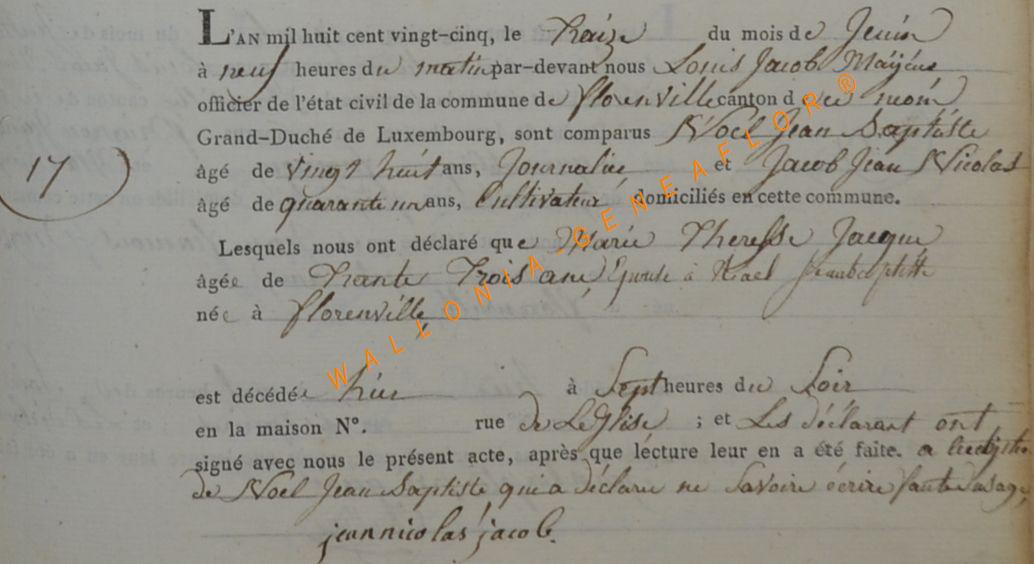 L'AN mil huit cent vingt-cinq, le Traize du mois de Jeuin
à neuf heures du matin par-devant nous Louis Jacob
officier de l'état civil de la commune de florenville canton d
Grand-Duché de Luxembourg, sont comparus Noël Jean Baptiste
17 âgé de vingt huit ans, Journalier et Jacob Jean Nicolas
âgé de quarante un ans, Cultivateur domiciliés en cette commune.
Lesquels nous ont déclaré que Marie Theresse Jacque
âgée de Trante Trois ans Epouse à Noel Jeanbaptiste
née à florenville
est décédée hier à Sept heures du Soir
en la maison N°. rue de LeGlise ; et Les déclarant ont
signé avec nous le présent acte, après que lécture leur en a été faite. a
de Noel Jean Baptiste qui a déclaré ne Savoire écrire faute usage
jean nicolas jacob.
WALLONIA-GENEAFLOR®